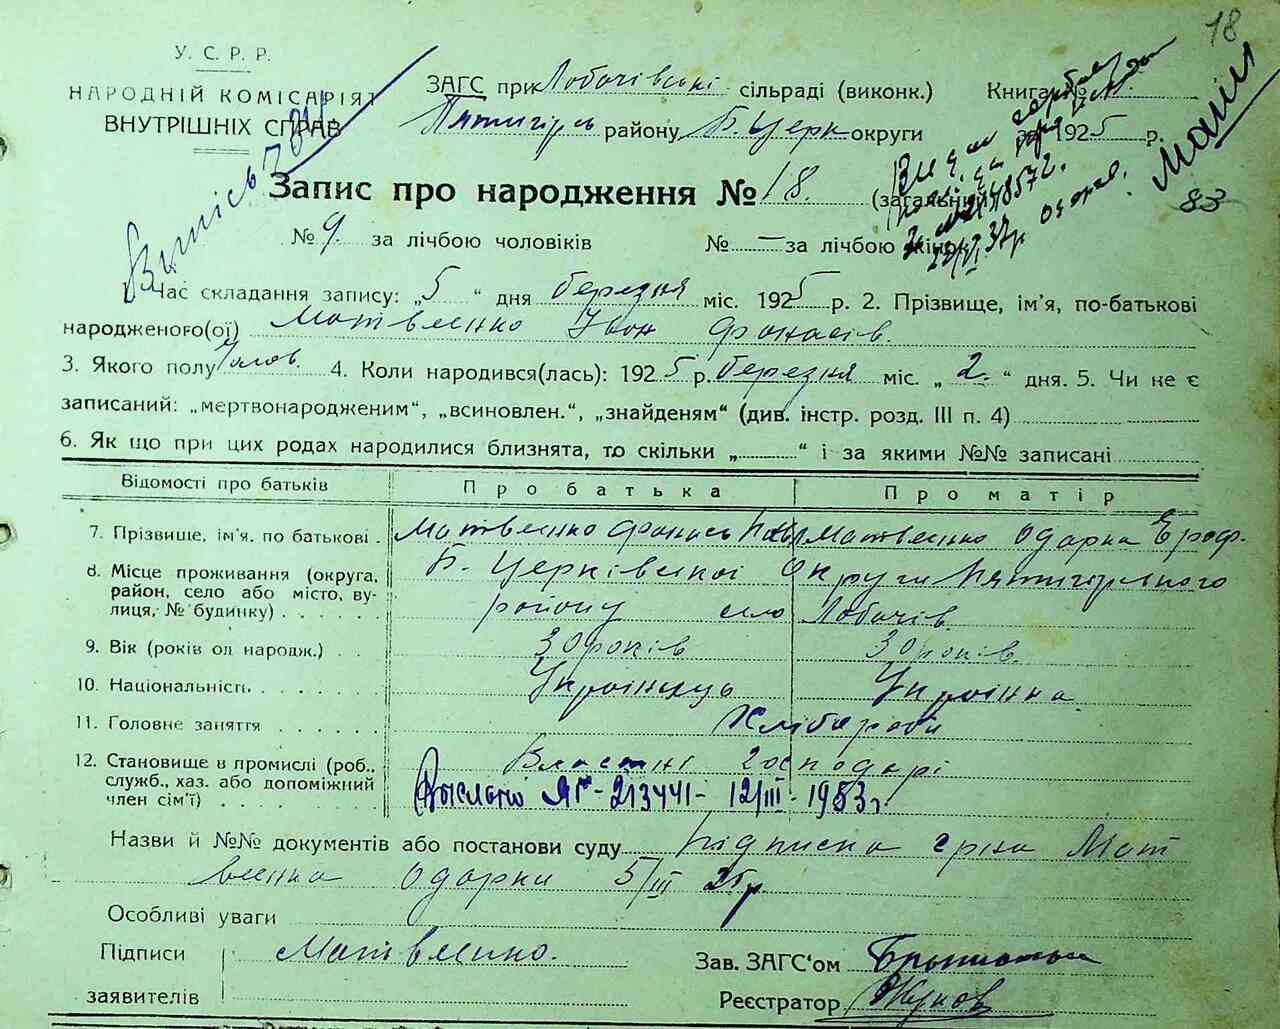 18
У. С. Р. Р.
НАРОДНІЙ КОМІСАРІЯТ
ВНУТРІШНІХ СПРАВ
ЗАГС при Лобачівські сільраді (виконк.) Книга №
Пятигірсь району Б. Церк округи за 1925 р.
Випись
Запис про народження № 18. (загальний)
83
№ 9. за лічбою чоловіків № – за лічбою жінок
Час складання запису: „5“ дня березня міс. 1925 р. 2. Прізвище, ім'я, по-батькові
народженого(ої) Матвієнко Іван Фанасів.
3. Якого полу Чолов. 4. Коли народився(лась): 1925 р. березня міс. „2.“ дня. 5. Чи не є
записаний: „мертвонародженим“, „всиновлен.“, „знайденям“ (див. інстр. розд. III п. 4)
6. Як що при цих родах народилися близнята, то скільки „ “ і за якими №№ записані
Відомості про батьків Про батька Про матір
7. Прізвище, ім'я, по батькові. Матвеенко Фанась Матвеенко Одарка Ероф.
8. Місце проживання (округа, Б. Церківської Округи Пятигорського
район, село або місто, ву- району село Лобачів.
лиця, № будинку)
9. Вік (років од народж.) 30 років 30 років.
10. Національність Українець Українка
11. Головне заняття Хлібороби
12. Становище в промислі (роб., Власні господарі
служб., хаз. або допоміжний
член сім'ї)
Выслано ЯГ-213441- 12/III-1953 г.
Назви й №№ документів або постанови суду Підписка гр-ка Мат
веенка Одарки 5/III 25 р
Особливі уваги
Підписи Матвеенко. Зав. ЗАГС'ом
заявителів Реєстратор Жуков